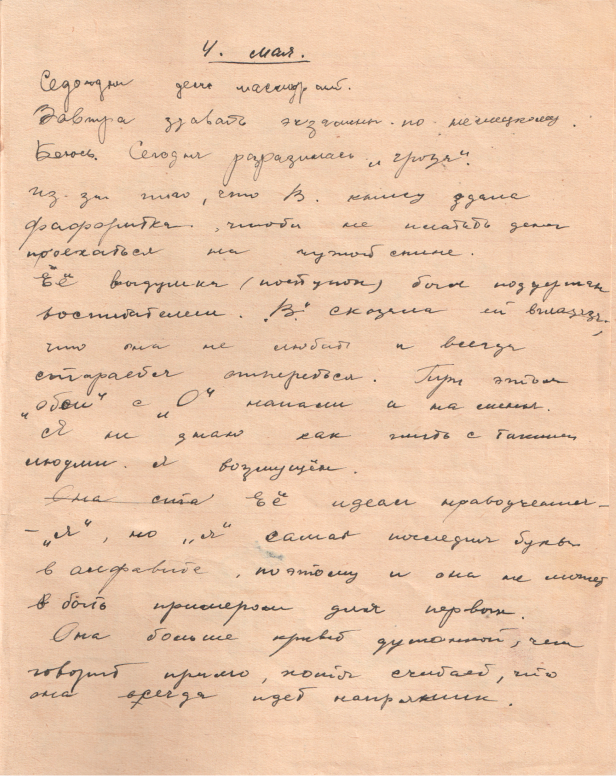 4. мая.
Седоюдни день маскир
Завтра здавать экзамены по немецкому.
Боюсь. Сегодня разразилась „гроза".
Из за того, что В. книгу здала
фафоритка, чтоби не платить день
проехаться на чужой спине.
Её выдумка (поступок) был поддержан
воспитателем. „В." сказала ей в глаза,
что она не любит и всегда
старается отпереться. При этом
„обои" с „О" напали и на меня.
Я ни знаю как жить с такими
людми. Я возмущён.
Она сита Её идеал нравоучения -
- „Я", но „я" самая последня буква
в алфавите, поэтому и она не может
быть примером для первых.
Она больше кривит душонкой, чем
говорит прямо, хотя считает, что
она всегда идет напрямик.